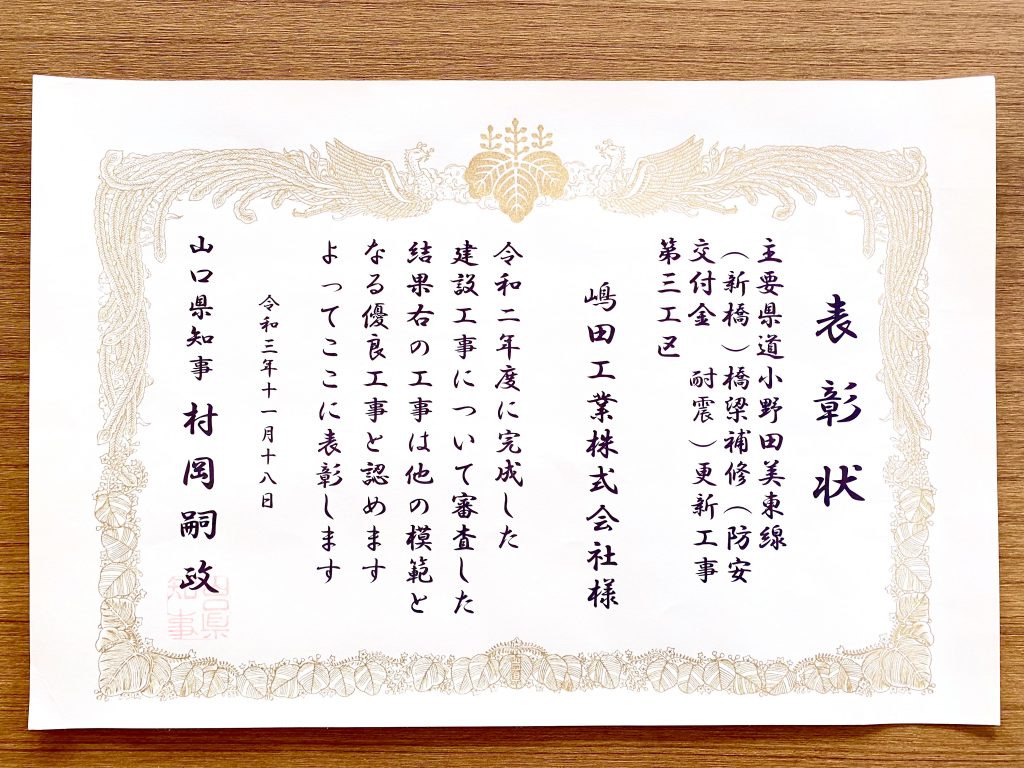 表彰状
主要県道小野田美東線
（新橋）橋梁補修（防安
交付金　耐震）更新工事
第三工区
嶋田工業株式会社様
令和二年度に完成した
建設工事について審査した
結果右の工事は他の模範と
なる優良工事と認めます
よってここに表彰します
令和三年十一月十八日
山口県知事　村岡嗣政
山口県
知事